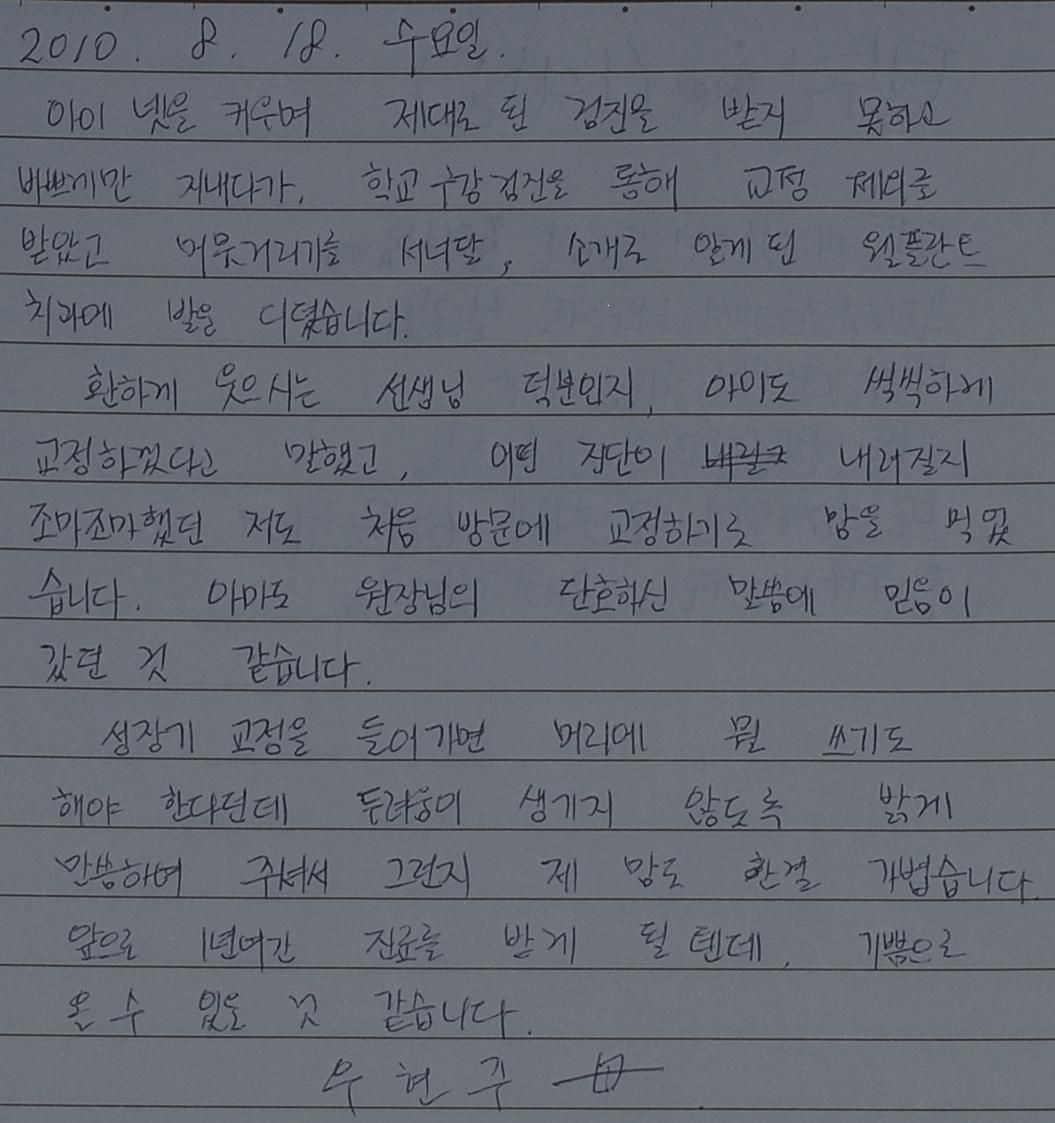 2010. 8. 18. 수요일.
아이 넷을 키우며 제대로 된 검진을 받지 못하고
바쁘게만 지내다가, 학교 구강검진을 통해 교정 제의를
받았고 머뭇거리기를 서너달, 소개로 알게 된 웰플란트
치과에 발을 디뎠습니다.
환하게 웃으시는 선생님 덕분인지, 아이도 씩씩하게
교정하겠다고 말했고, 어떤 진단이 내려질지
조마조마했던 저도 처음 방문에 교정하기로 맘을 먹었
습니다. 아마도 원장님의 단호하신 말씀에 믿음이
갔던 것 같습니다.
성장기 교정을 들어가면 머리에 뭘 쓰기도
해야 한다던데 두려움이 생기지 않도록 밝게
말씀하여 주셔서 그런지 제 맘도 한결 가볍습니다.
앞으로 1년여간 진료를 받게 될 텐데, 기쁨으로
올 수 있을 것 같습니다.
우현주 母